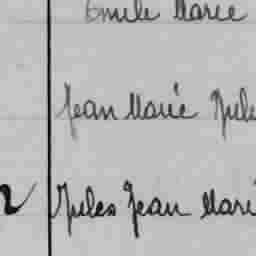 Emile Marie
Jean Marie Jules
Jules Jean Marie